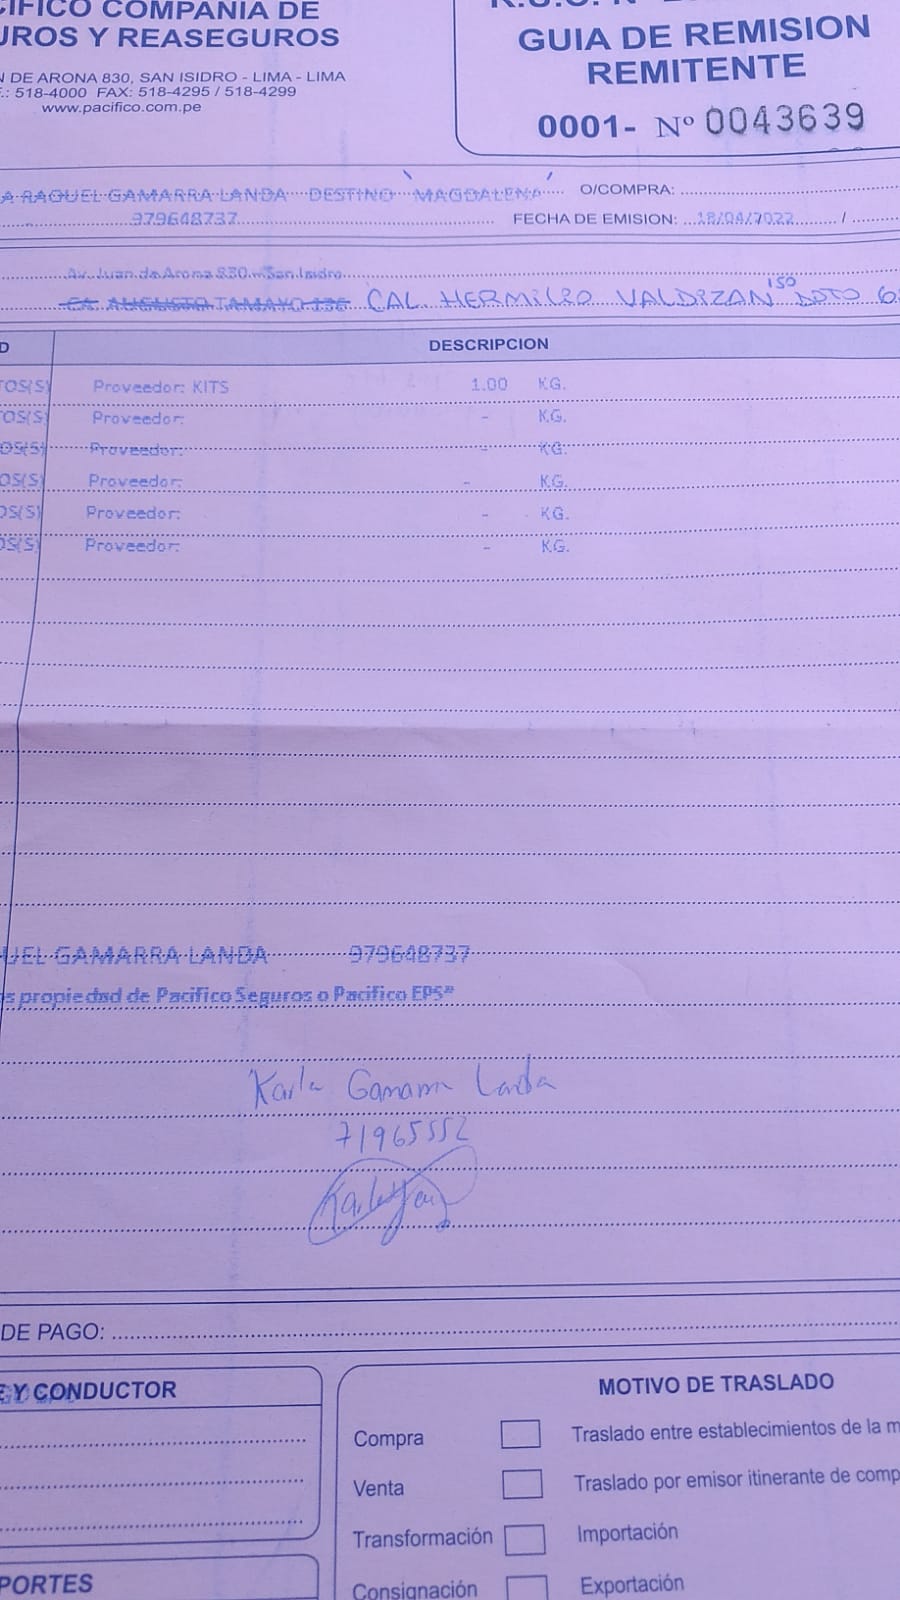 CIFICO COMPAÑIA DE
UROS Y REASEGUROS
N DE ARONA 830, SAN ISIDRO - LIMA - LIMA
.: 518-4000 FAX: 518-4295 / 518-4299
www.pacifico.com.pe
GUIA DE REMISION
REMITENTE
0001- Nº 0043639
A RAQUEL GAMARRA LANDA DESTINO MAGDALENA O/COMPRA:
979648737 FECHA DE EMISION: 18/04/2022 /
Av. Juan de Arona 830 - San Isidro
150
CA AUGUSTO TAMAYO 136 CAL HERMILIO VALDIZAN DPTO 6
D DESCRIPCION
TOS(S) Proveedor: KITS 1.00 KG.
TOS(S) Proveedor: - KG.
OS(S) Proveedor: - KG.
OS(S) Proveedor: - KG.
OS(S) Proveedor: - KG.
OS(S) Proveedor: - KG.
UEL GAMARRA LANDA 979648737
s propiedad de Pacifico Seguros o Pacifico EPS"
Karla Gamarra Landa
71965552
DE PAGO:
E Y CONDUCTOR
MOTIVO DE TRASLADO
Compra Traslado entre establecimientos de la m
Venta Traslado por emisor itinerante de comp
Transformación Importación
Consignación Exportación
PORTES